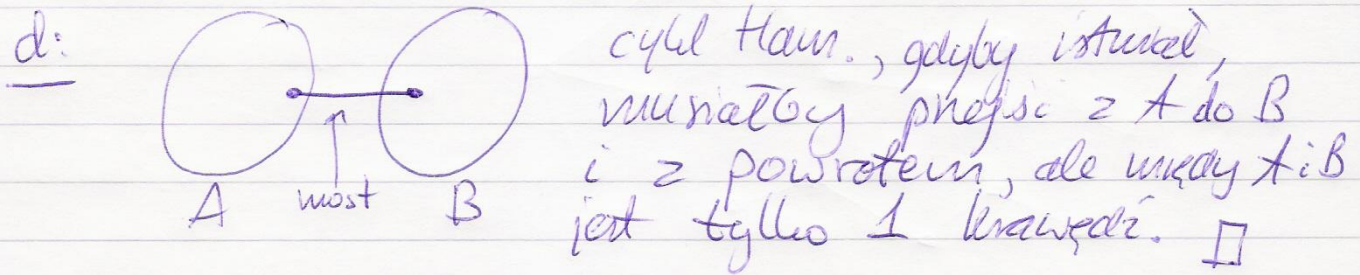 d:
cykl Ham., gdyby istniał,
musiałby przejść z A do B
i z powrotem, ale między A i B
jest tylko 1 krawędź. □
A most B